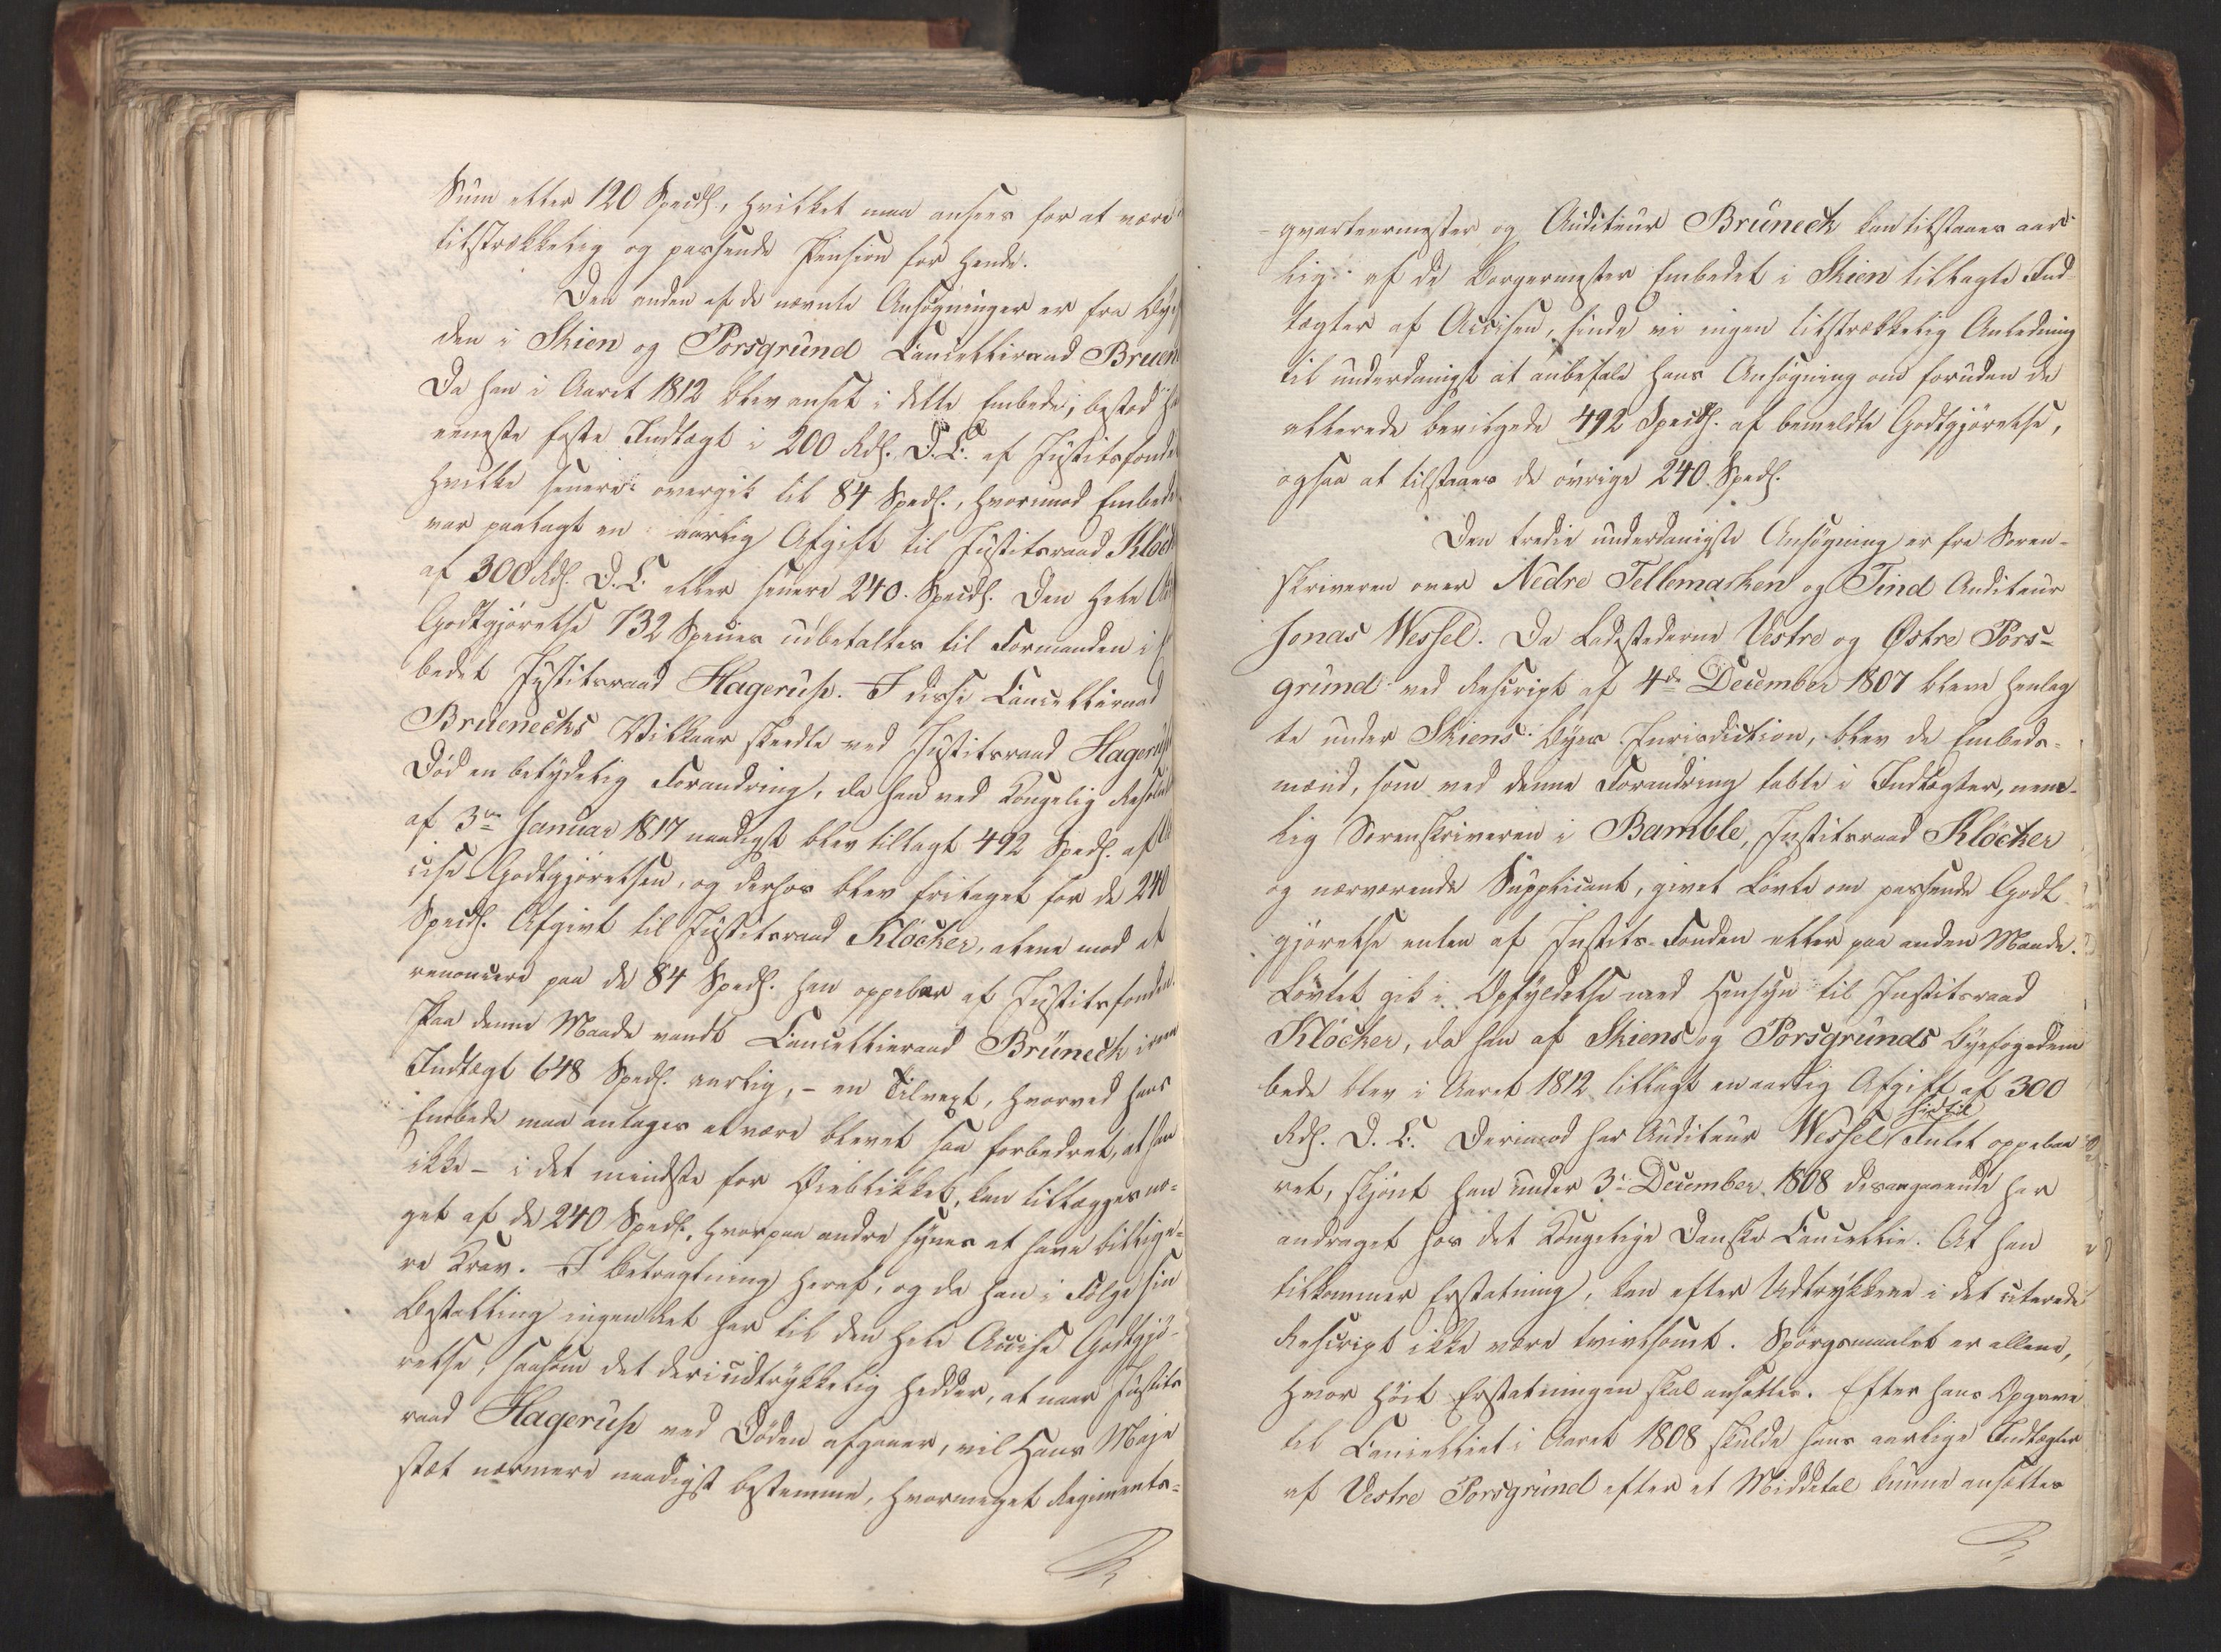 Sum eller 120 Specdl., hvilket maa ansees for at være
tilstrækkelig og passende Pension for hende.
Den anden af de nævnte Ansøgninger er fra
den i Skien og Porsgrund Cancelliraad
Da han i Aaret 1812 blev ansat i dette Embede, bestod
eeneste faste Indtægt i 200 Rdl. D. C. af Justitsfonden
hvilke senere overgik til 84 Spedl., hvorimod
var paalagt en aarlig Afgift til Justitsraad
af 300 Rdl. D. C. eller senere 240 Specdl. Den hele
Godtgjørelse 732 Species udbetaltes til Formanden i
bedet Justitsraad Hagerup. I disse Cancelliraad
Bruenechs Vilkaar skeedte ved Justitsraad Hagerups
Død en betydelig Forandring, da han ved Kongelig
af 3die Januar 1817 naadigst blev tillagt 492 Spedl. af
cise Godtgjørelsen, og derhos blev fritaget for de 240
Specdl. Afgivt til Justitsraad Kløcker, alene mod at
renoncere paa de 84 Spedl. han oppebar af Justitsfonden.
Paa denne Maade vandt Cancellieraad Brüneck i
Indtægt 648 Spedl. aarlig, - en Tilvext, hvorved hans
Embede maa antages at være blevet saa forbedret, at han
ikke - i det mindste for Øieblikket, kan tillægges no-
get af de 240 Spedl., hvorpaa andre synes at have billige-
re Krav. I Betragtning heraf, og da han i Følge sin
Bestalling ingen Ret har til den hele Accise Godtgjø-
relse, saasom det deri udtrykkelig hedder, at naar Justits
raad Hagerup ved Døden afgaaer, vil Hans Maje
stæt nærmere naadigst bestemme, hvormeget Regiments-
qvarteermester og Auditeur Brüneck kan tilstaaes aar-
lig af de Borgermester Embedet i Skien tillagte Ind-
tægter af Accisen, finde vi ingen tilstrækkelig Anledning
til underdanigst at anbefale hans Ansøgning om foruden de
allerede bevilgede 492 Specdl. af bemeldte Godtgjørelse,
ogsaa at tilstaaes de øvrige 240 Spedl.
Den tredie underdanigste Ansøgning er fra Soren-
skriveren over Nedre Tellemarken og Tind Auditeur
Jonas Wessel. Da Ladestederne Vestre og Østre Pors-
grund ved Rescript af 4de December 1807 bleve henlag
te under Skiens Byes Jurisdiction, blev de Embeds-
mænd, som ved denne Forandring tabte i Indtægter, nem-
lig Sorenskriveren i Bamble, Justitsraad Kløcker
og nærværende Supplicant, givet Løvte om passende Godt
gjørelse enten af Justits-Fonden eller paa anden Maade.
Løvtet gik i Opfyldelse med Hensyn til Justitsraad
Kløcker, da han af Skiens og Porsgrunds Byefogedem
bede blev i Aaret 1812 tillagt en aarlig Afgift af 300
Rdl. D. C. Derimod har Auditeur Wessel hidtil Intet oppebaa
ret, skjønt han under 3die December 1808 desangaaende har
andraget hos det Kongelige Danske Cancellie. At han
tilkommer Erstatning, kan efter Udtrykkene i det citerede
Rescript ikke være tvivlsomt. Spørgsmaalet er allene,
hvor høit Erstatningen skal ansættes. Efter hans Opgave
til Cancelliet i Aaret 1808 skulde hans aarlige Indtægter
af Vestre Porsgrund efter et Middeltal kunne ansættes